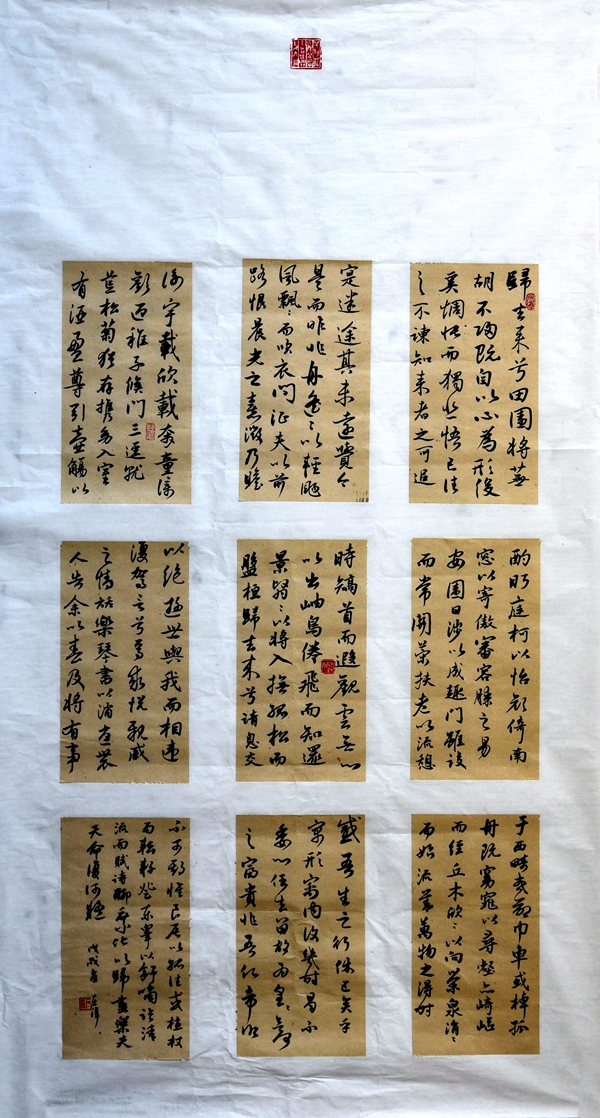 歸去來兮田園將蕪
胡不歸既自以心為形役
奚惆悵而獨悲悟已往
之不諫知來者之可追
寔迷途其未遠覺今
是而昨非舟遙〻以輕颺
風飄〻而吹衣問征夫以前
路恨晨光之熹微乃瞻
衡宇載欣載奔童僕
歡迎稚子候門三逕就
荒松菊猶存攜幼入室
有酒盈尊引壺觴以
酌眄庭柯以怡顏倚南
窓以寄傲審容膝之易
安園日涉以成趣門雖設
而常關策扶老以流憩
時矯首而遐觀雲無心
以出岫鳥倦飛而知還
景翳〻以將入撫孤松而
盤桓歸去來兮請息交
以絕游世與我而相違
復駕言兮焉求悅親戚
之情話樂琴書以消憂農
人告余以春及將有事
于西疇或命巾車或棹孤
舟既窈窕以尋壑亦崎嶇
而經丘木欣〻以向榮泉涓〻
而始流善萬物之得時
感吾生之行休已矣乎
寓形宇內復幾時曷不
委心任去留胡為皇〻欲何
之富貴非吾願帝鄉
不可期懷良辰以孤往或植杖
而耘耔登東皋以舒嘯臨清
流而賦詩聊乘化以歸盡樂夫
天命復奚疑
戊戌年